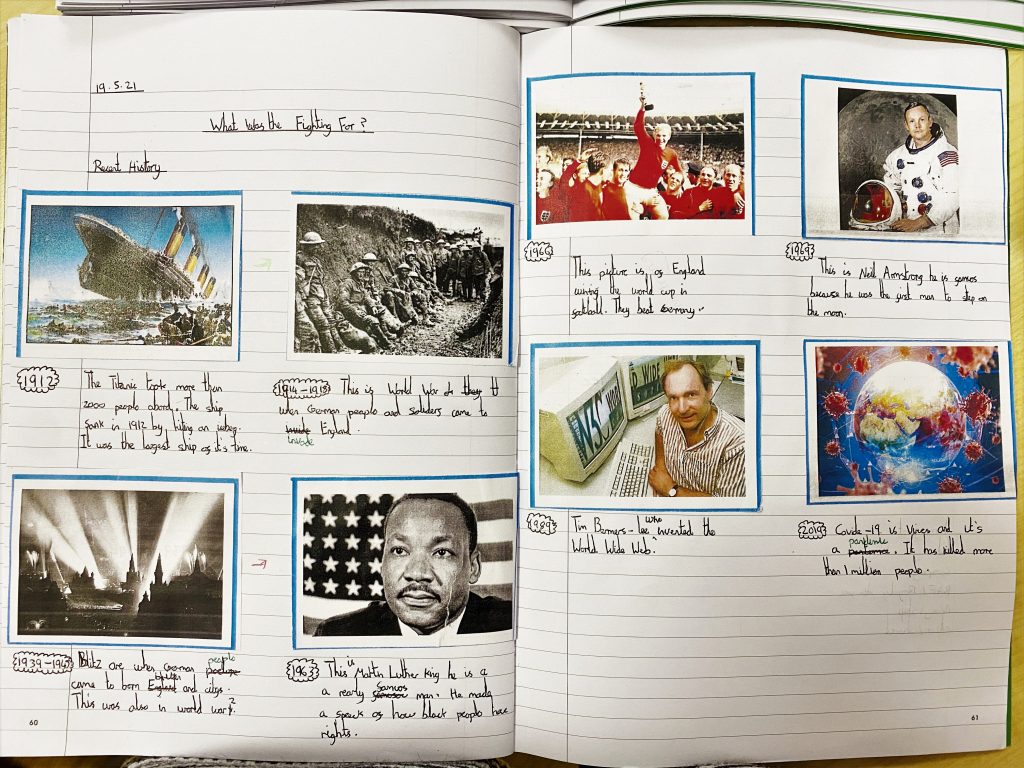 19.5.21
What Was the Fighting For?
Recent History
1912
The Titanic topk more than
2000 people abord. The ship
sank in 1912 by hiting an
It was the largest ship of it's time.
1914-1918
This is World War
when German people and solders came to
inside England.
1939-1945
Blitz are when German people
came to bom british and citys.
This was also in world war 2.
1963
This is Martin Luther King he is a
a rearly famous man. He made
a speek of how black people have
rights.
60
1966
This picture is of England
wining the world cup in
football. They beat Germany.
1969
This is Neil Armstrong he is famous
because he was the first man to step on
the moon.
W3C WORL
D WIDE
1989
Tim Berners-lee who invented the
World Wide Web.
2019
Covide-19 is Vires and it's
a pandemic. It has killed more
than 1 million people.
61